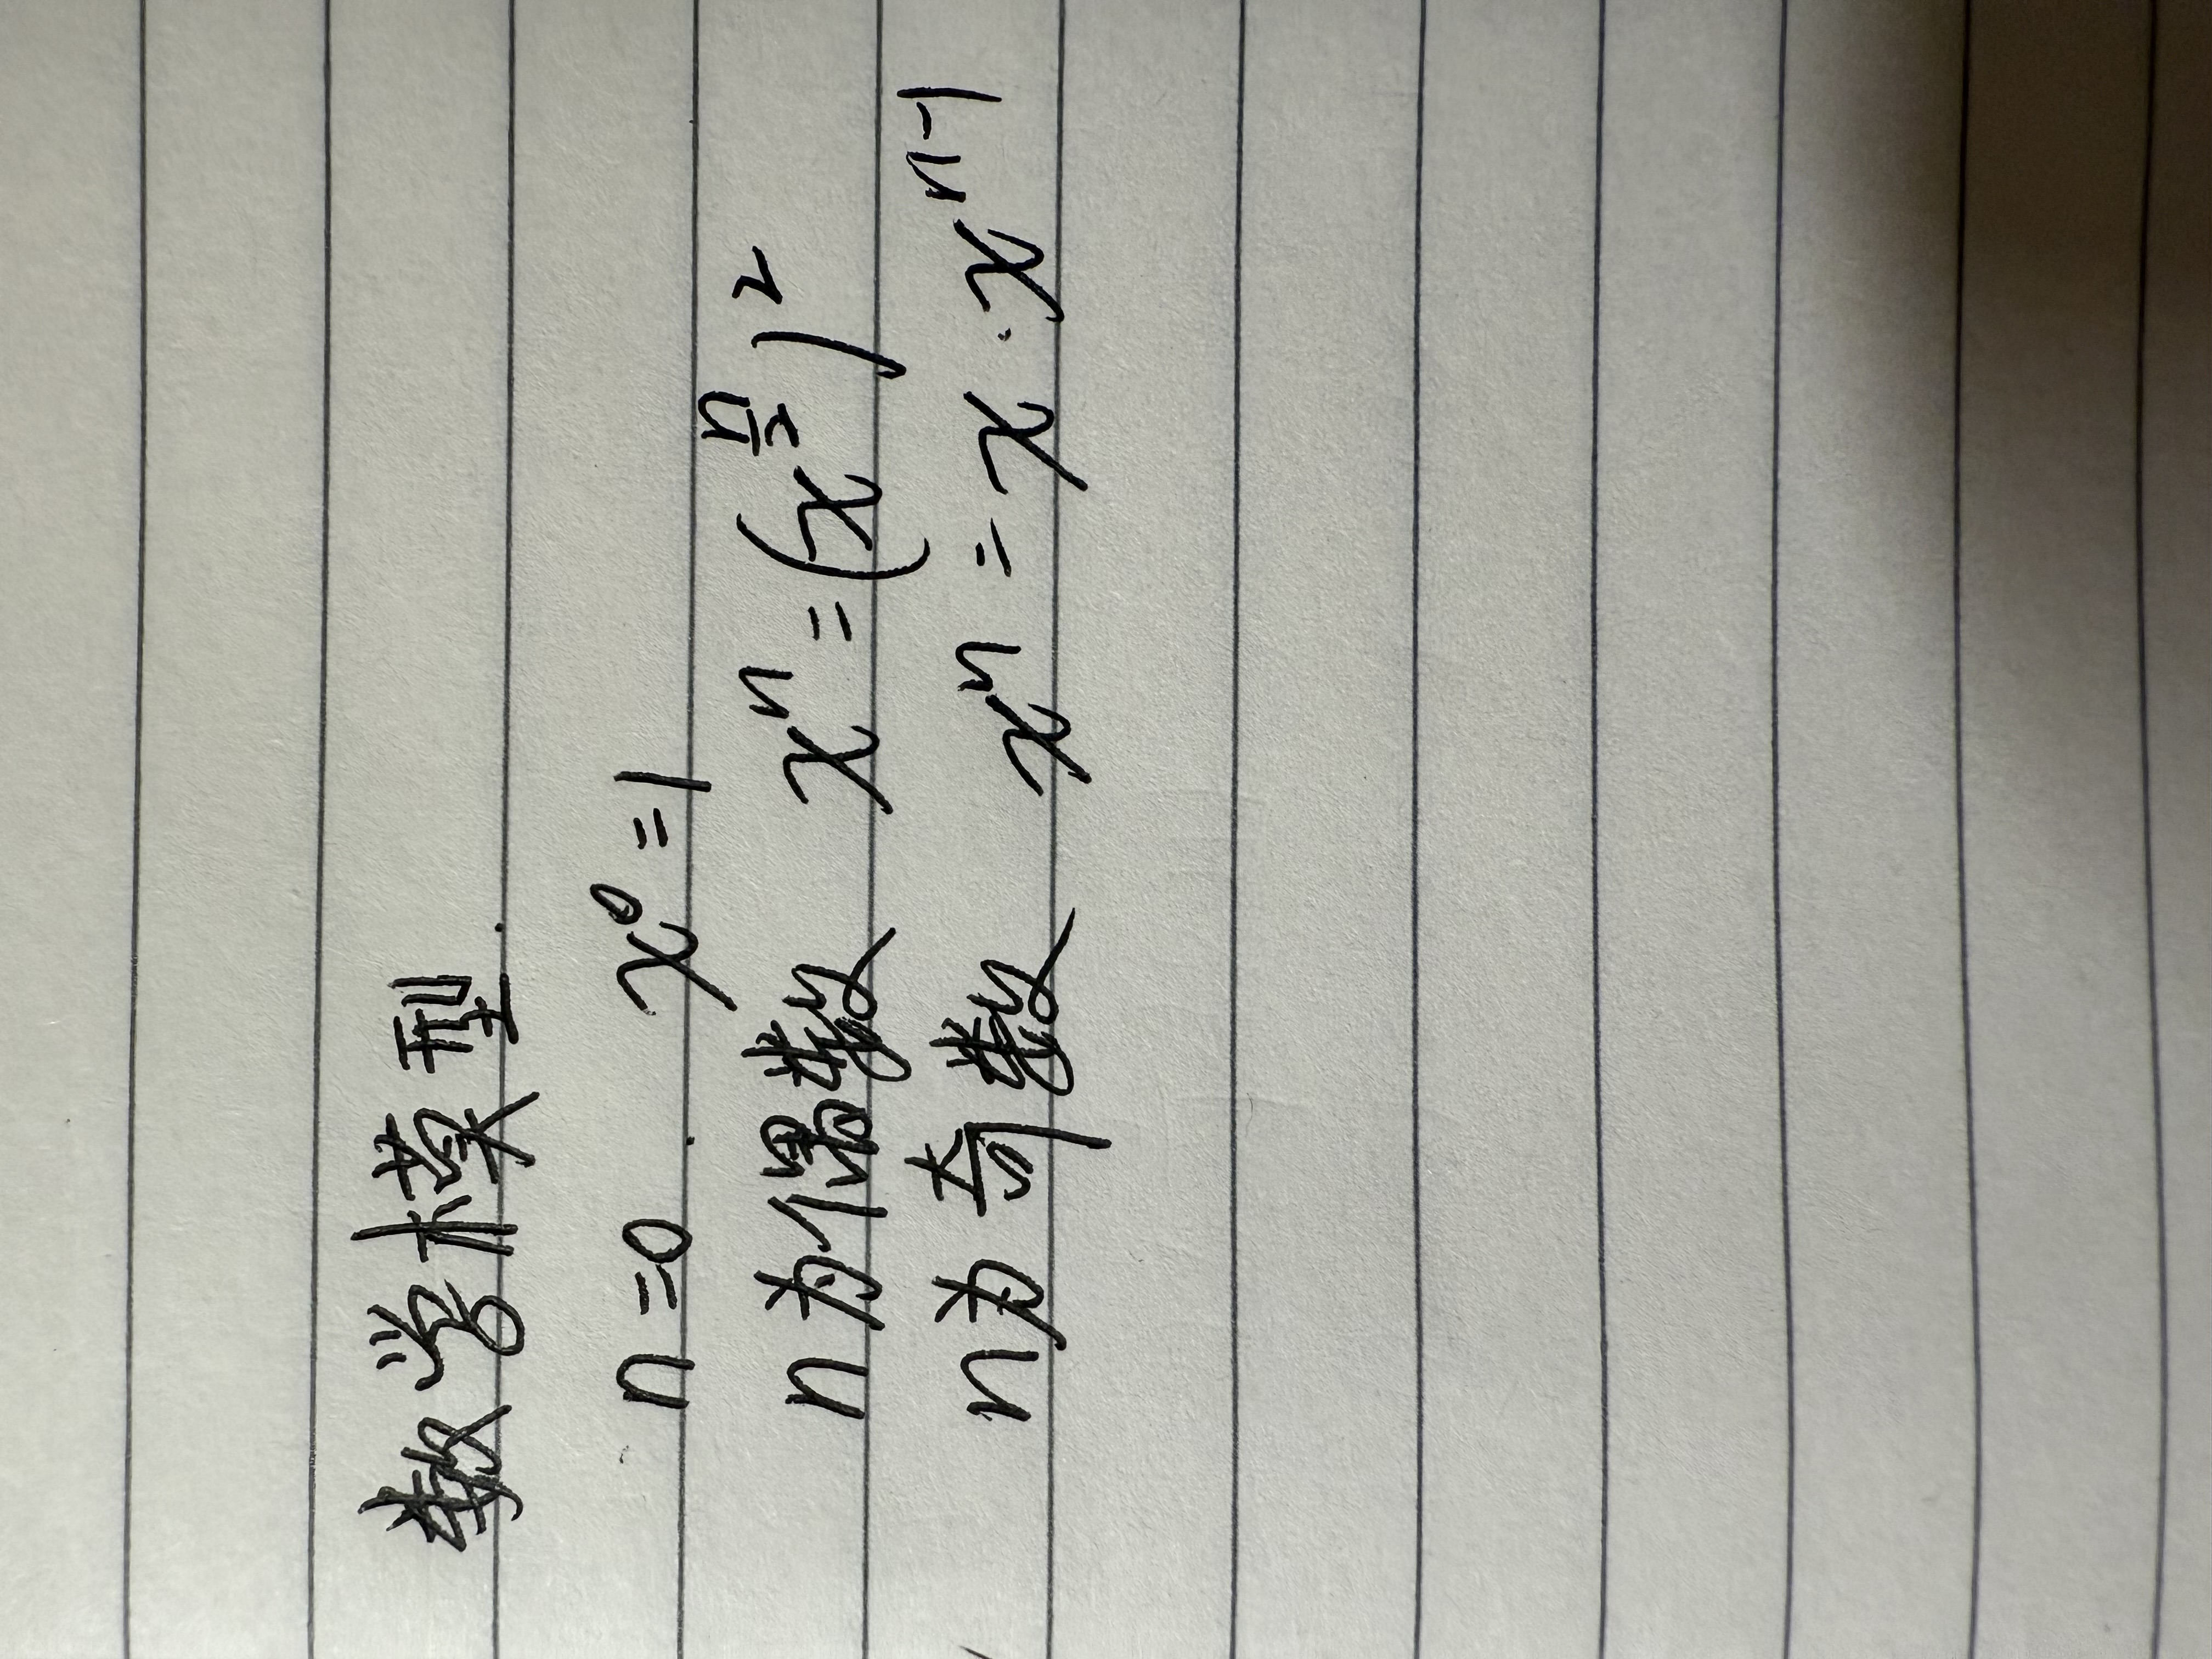 数学模型.
n=0 x⁰=1
n为偶数 xⁿ=(x^{n/2})²
n为奇数 xⁿ=x·xⁿ⁻¹